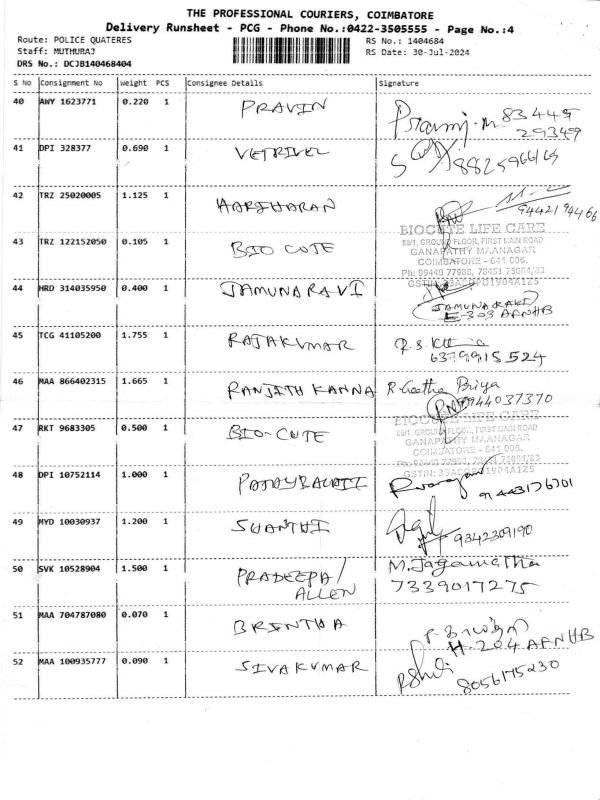 THE PROFESSIONAL COURIERS, COIMBATORE
Delivery Runsheet - PCG - Phone No.:0422-3505555 - Page No.:4
Route: POLICE QUATERES RS No.: 1404684
Staff: MUTHURAJ RS Date: 30-Jul-2024
DRS No.: DCJB140468404
S No Consignment No Weight PCS Consignee Details Signature
40 AWY 1623771 0.220 1 PRAVIN 83445
29349
41 DPI 328377 0.690 1 VETRIVEL
42 TRZ 25020005 1.125 1 HARIHARAN 9442194466
BIOCUTE LIFE CARE
88/1, GROUND FLOOR, FIRST MAIN ROAD
43 TRZ 122152050 0.105 1 BIO CUTE GANAPATHY MAANAGAR
COIMBATORE - 641 006.
Ph: 99440 77988, 78451 75084/83
44 HRD 314035950 0.400 1 JAMUNA RAVI
JAMUNA RAVI
E-303 AFNHB
45 TCG 41105200 1.755 1 RAJAKUMAR
6379915524
46 MAA 866402315 1.665 1 RANJITH KANNA R. Geetha Priya
9944037370
BIOCUTE LIFE CARE
47 RKT 9683305 0.500 1 BIO-CUTE 88/1, GROUND FLOOR, FIRST MAIN ROAD
GANAPATHY MAANAGAR
COIMBATORE - 641 006.
48 DPI 10752114 1.000 1
49 MYD 10030937 1.200 1 SHANTHI 9342309190
50 SVK 10528904 1.500 1 PRADEEPA/ M. Jaganatha
ALLEN 7339017275
51 MAA 704787080 0.070 1 BRINTHA
H-204 AFNHB
52 MAA 100935777 0.090 1 SIVAKUMAR 8056175230